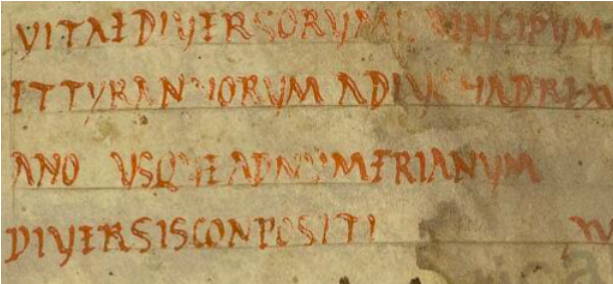 VITAE DIVERSORVM PRINCIPVM
ET TYRANNORVM A DIVO HADRI
ANO VSQVE AD NVMERIANVM
DIVERSIS CONPOSITI